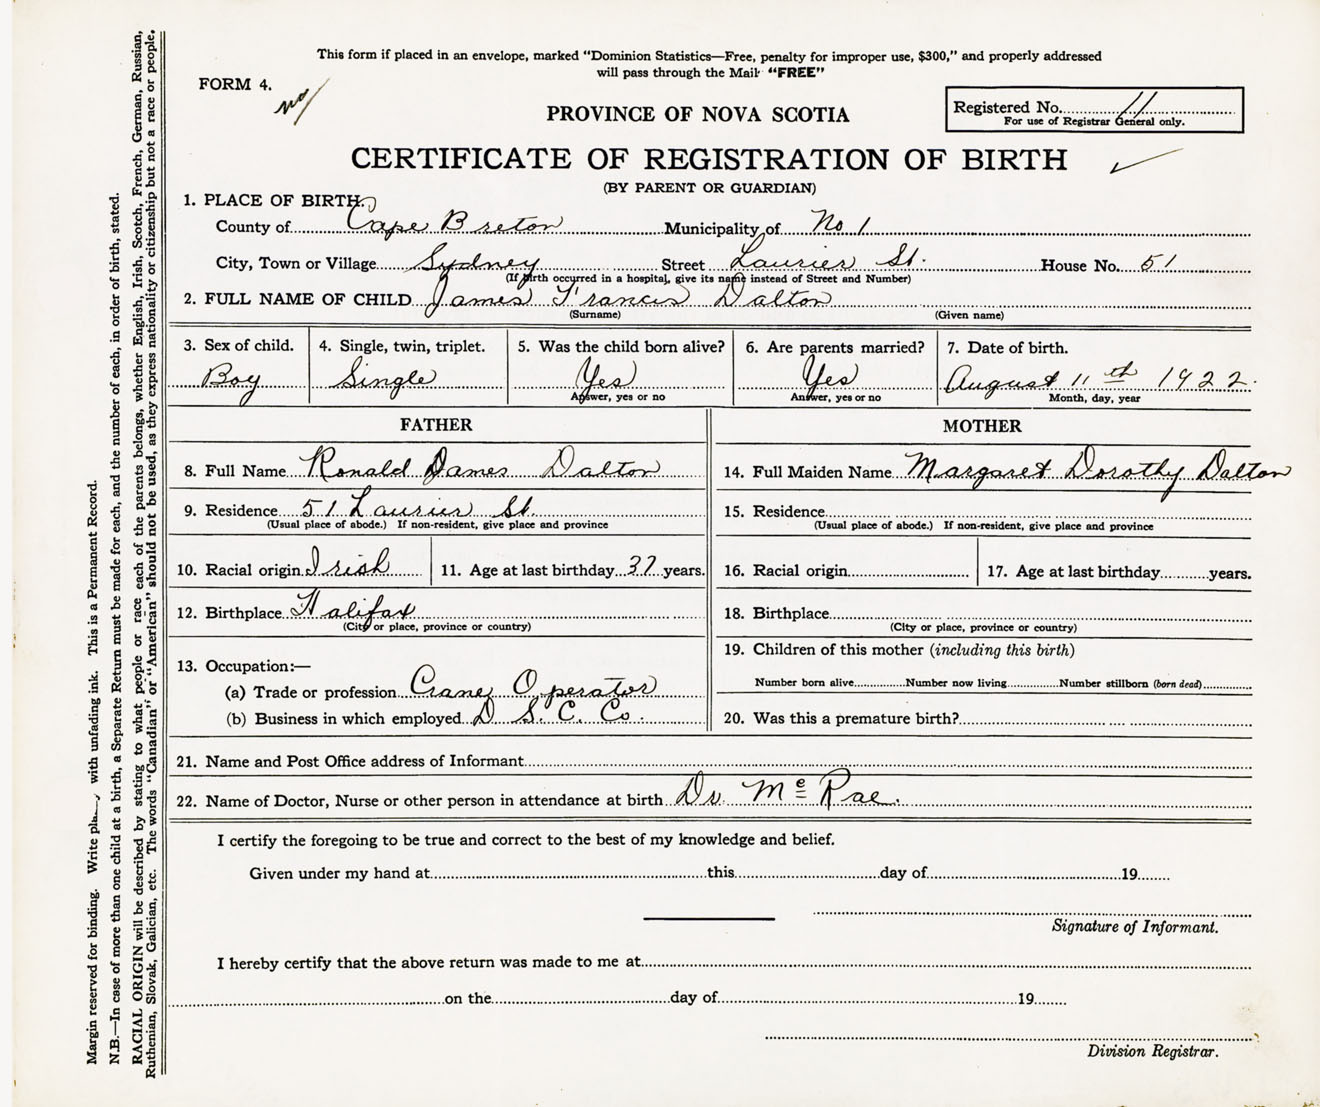 This form if placed in an envelope, marked "Dominion Statistics—Free, penalty for improper use, $300," and properly addressed
will pass through the Mail "FREE"
FORM 4.
no
PROVINCE OF NOVA SCOTIA
Registered No. 11
For use of Registrar General only.
CERTIFICATE OF REGISTRATION OF BIRTH
(BY PARENT OR GUARDIAN)
1. PLACE OF BIRTH.
County of Cape Breton Municipality of No 1
City, Town or Village Sydney Street Laurier St. House No. 51
(If birth occurred in a hospital, give its name instead of Street and Number)
2. FULL NAME OF CHILD James Francis Dalton
(Surname) (Given name)
3. Sex of child. 4. Single, twin, triplet. 5. Was the child born alive? 6. Are parents married? 7. Date of birth.
Boy Single Yes Yes August 11th 1922.
Answer, yes or no Answer, yes or no Month, day, year
FATHER MOTHER
8. Full Name Ronald James Dalton 14. Full Maiden Name Margaret Dorothy Dalton
9. Residence 51 Laurier St. 15. Residence
(Usual place of abode.) If non-resident, give place and province (Usual place of abode.) If non-resident, give place and province
10. Racial origin Irish 11. Age at last birthday 37 years. 16. Racial origin 17. Age at last birthday years.
12. Birthplace Halifax 18. Birthplace
(City or place, province or country) (City or place, province or country)
13. Occupation:— 19. Children of this mother (including this birth)
(a) Trade or profession Crane Operator Number born alive Number now living Number stillborn (born dead)
(b) Business in which employed D. S. C. Co. 20. Was this a premature birth?
21. Name and Post Office address of Informant
22. Name of Doctor, Nurse or other person in attendance at birth Dr. McRae.
I certify the foregoing to be true and correct to the best of my knowledge and belief.
Given under my hand at this day of 19
Signature of Informant.
I hereby certify that the above return was made to me at
on the day of 19
Division Registrar.
Margin reserved for binding. Write with unfading ink. This is a Permanent Record.
N.B.—In case of more than one child at a birth, a Separate Return must be made for each, and the number of each, in order of birth, stated.
RACIAL ORIGIN will be described by stating to what people or race each of the parents belongs, whether English, Irish, Scotch, French, German, Russian,
Ruthenian, Slovak, Galician, etc. The words "Canadian" or "American" should not be used, as they express nationality or citizenship but not a race or people.